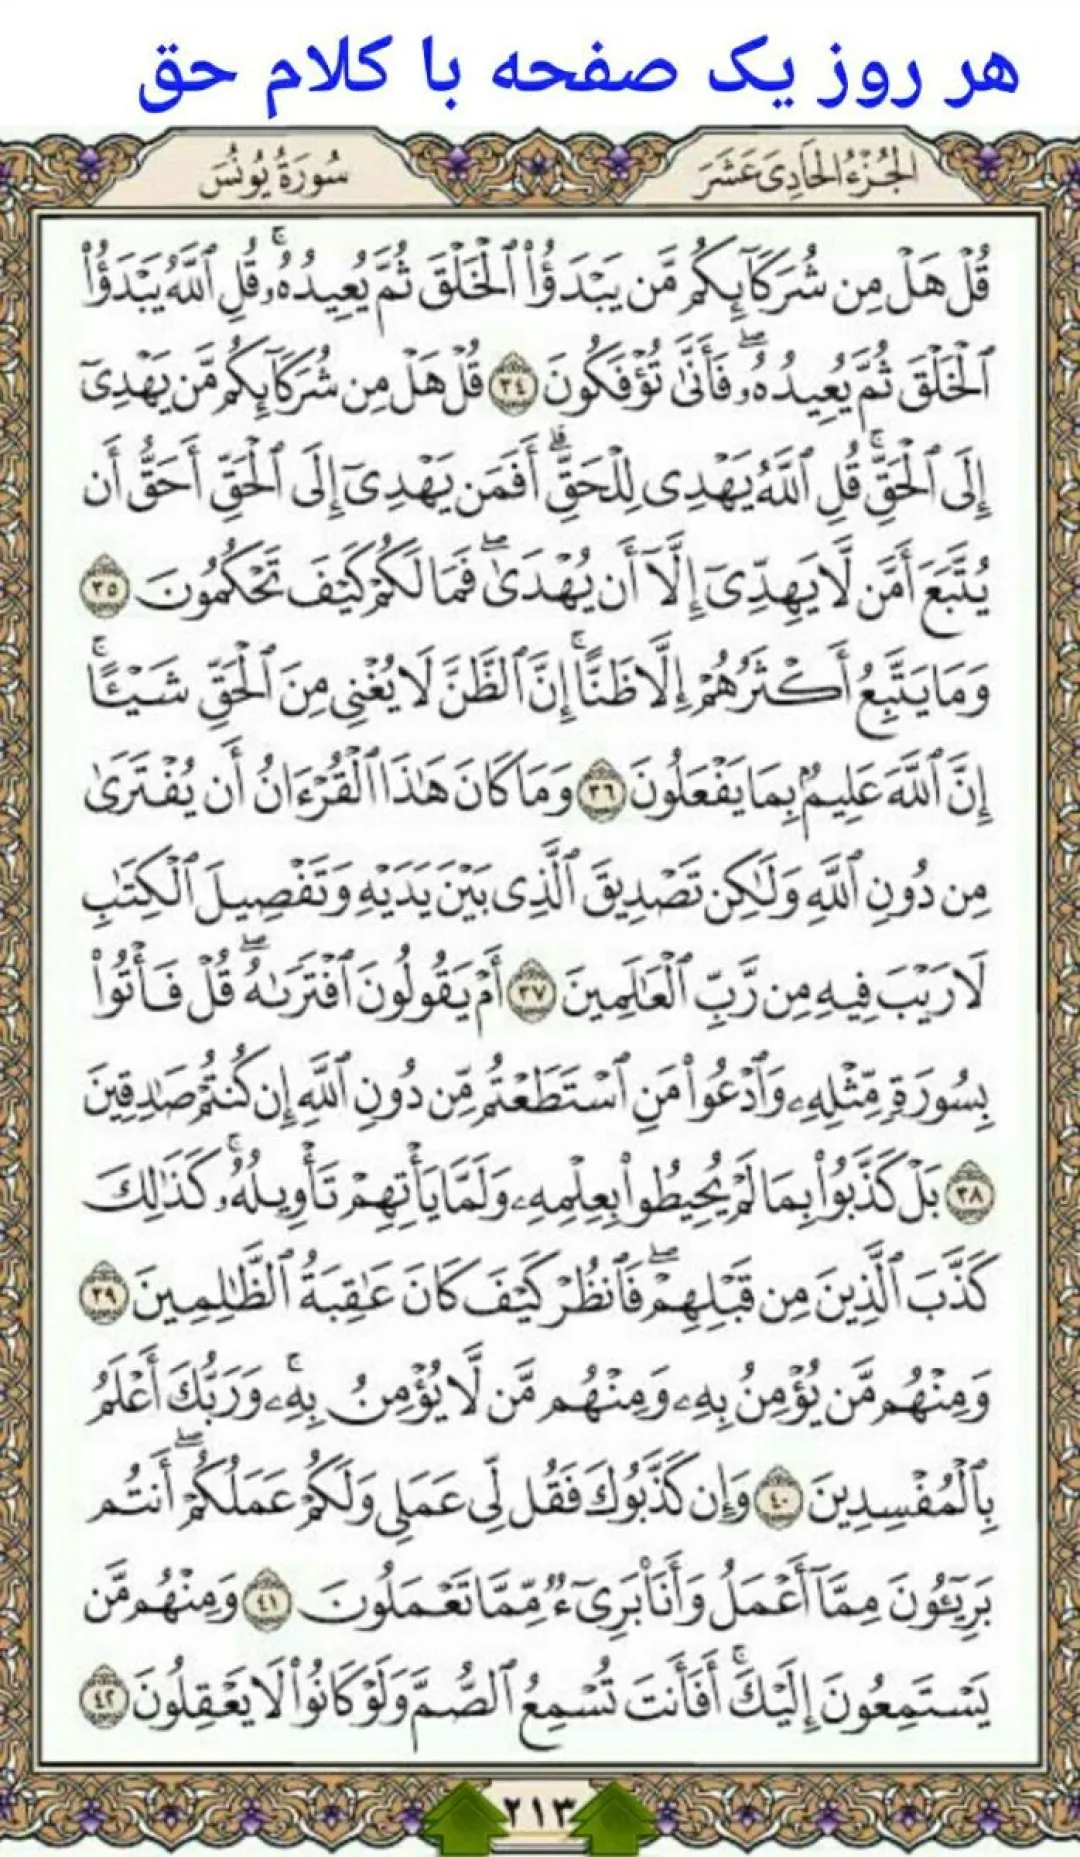 هر روز یک صفحه با کلام حق
الجُزْءُ الحَادِىَ عَشَرَ
سُورَةُ يُونُسَ
قُلْ هَلْ مِن شُرَكَآئِكُم مَّن يَبْدَؤُا۟ ٱلْخَلْقَ ثُمَّ يُعِيدُهُۥ ۚ قُلِ ٱللَّهُ يَبْدَؤُا۟
ٱلْخَلْقَ ثُمَّ يُعِيدُهُۥ ۖ فَأَنَّىٰ تُؤْفَكُونَ ٣٤ قُلْ هَلْ مِن شُرَكَآئِكُم مَّن يَهْدِىٓ
إِلَى ٱلْحَقِّ ۚ قُلِ ٱللَّهُ يَهْدِى لِلْحَقِّ ۗ أَفَمَن يَهْدِىٓ إِلَى ٱلْحَقِّ أَحَقُّ أَن
يُتَّبَعَ أَمَّن لَّا يَهِدِّىٓ إِلَّآ أَن يُهْدَىٰ ۖ فَمَا لَكُمْ كَيْفَ تَحْكُمُونَ ٣٥
وَمَا يَتَّبِعُ أَكْثَرُهُمْ إِلَّا ظَنًّا ۚ إِنَّ ٱلظَّنَّ لَا يُغْنِى مِنَ ٱلْحَقِّ شَيْـًٔا ۚ
إِنَّ ٱللَّهَ عَلِيمٌۢ بِمَا يَفْعَلُونَ ٣٦ وَمَا كَانَ هَٰذَا ٱلْقُرْءَانُ أَن يُفْتَرَىٰ
مِن دُونِ ٱللَّهِ وَلَٰكِن تَصْدِيقَ ٱلَّذِى بَيْنَ يَدَيْهِ وَتَفْصِيلَ ٱلْكِتَٰبِ
لَا رَيْبَ فِيهِ مِن رَّبِّ ٱلْعَٰلَمِينَ ٣٧ أَمْ يَقُولُونَ ٱفْتَرَىٰهُ ۖ قُلْ فَأْتُوا۟
بِسُورَةٍ مِّثْلِهِۦ وَٱدْعُوا۟ مَنِ ٱسْتَطَعْتُم مِّن دُونِ ٱللَّهِ إِن كُنتُمْ صَٰدِقِينَ
٣٨ بَلْ كَذَّبُوا۟ بِمَا لَمْ يُحِيطُوا۟ بِعِلْمِهِۦ وَلَمَّا يَأْتِهِمْ تَأْوِيلُهُۥ ۚ كَذَٰلِكَ
كَذَّبَ ٱلَّذِينَ مِن قَبْلِهِمْ ۖ فَٱنظُرْ كَيْفَ كَانَ عَٰقِبَةُ ٱلظَّٰلِمِينَ ٣٩
وَمِنْهُم مَّن يُؤْمِنُ بِهِۦ وَمِنْهُم مَّن لَّا يُؤْمِنُ بِهِۦ ۚ وَرَبُّكَ أَعْلَمُ
بِٱلْمُفْسِدِينَ ٤٠ وَإِن كَذَّبُوكَ فَقُل لِّى عَمَلِى وَلَكُمْ عَمَلُكُمْ ۖ أَنتُم
بَرِيٓـُٔونَ مِمَّآ أَعْمَلُ وَأَنَا۠ بَرِىٓءٌ مِّمَّا تَعْمَلُونَ ٤١ وَمِنْهُم مَّن
يَسْتَمِعُونَ إِلَيْكَ ۚ أَفَأَنتَ تُسْمِعُ ٱلصُّمَّ وَلَوْ كَانُوا۟ لَا يَعْقِلُونَ ٤٢
٢١٣